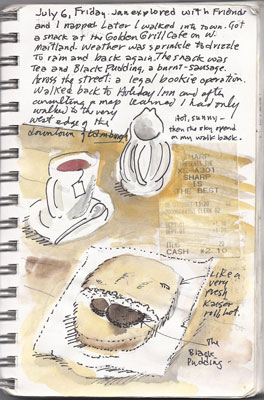 July 6, Friday. Jan explored with Friends
and I napped. Later I walked into town. Got
a snack at the Golden Grill Cafe on W.
Maitland. Weather was sprinkle to drizzle
to rain and back again. The snack was
Tea and Black Pudding, a burnt-sausage.
Across the street: a legal bookie operation.
Walked back to Holiday Inn and after
consulting a map learned I had only
walked to the very
west edge of the
downtown of Edinburgh
Hot, sunny –
then the sky opened
on my walk back.
SHARP
XE-A301
SHARP
IS
THE BEST
CASH £2.10
Like a
very
fresh
Kaiser
roll, hot.
The
Black
Pudding.